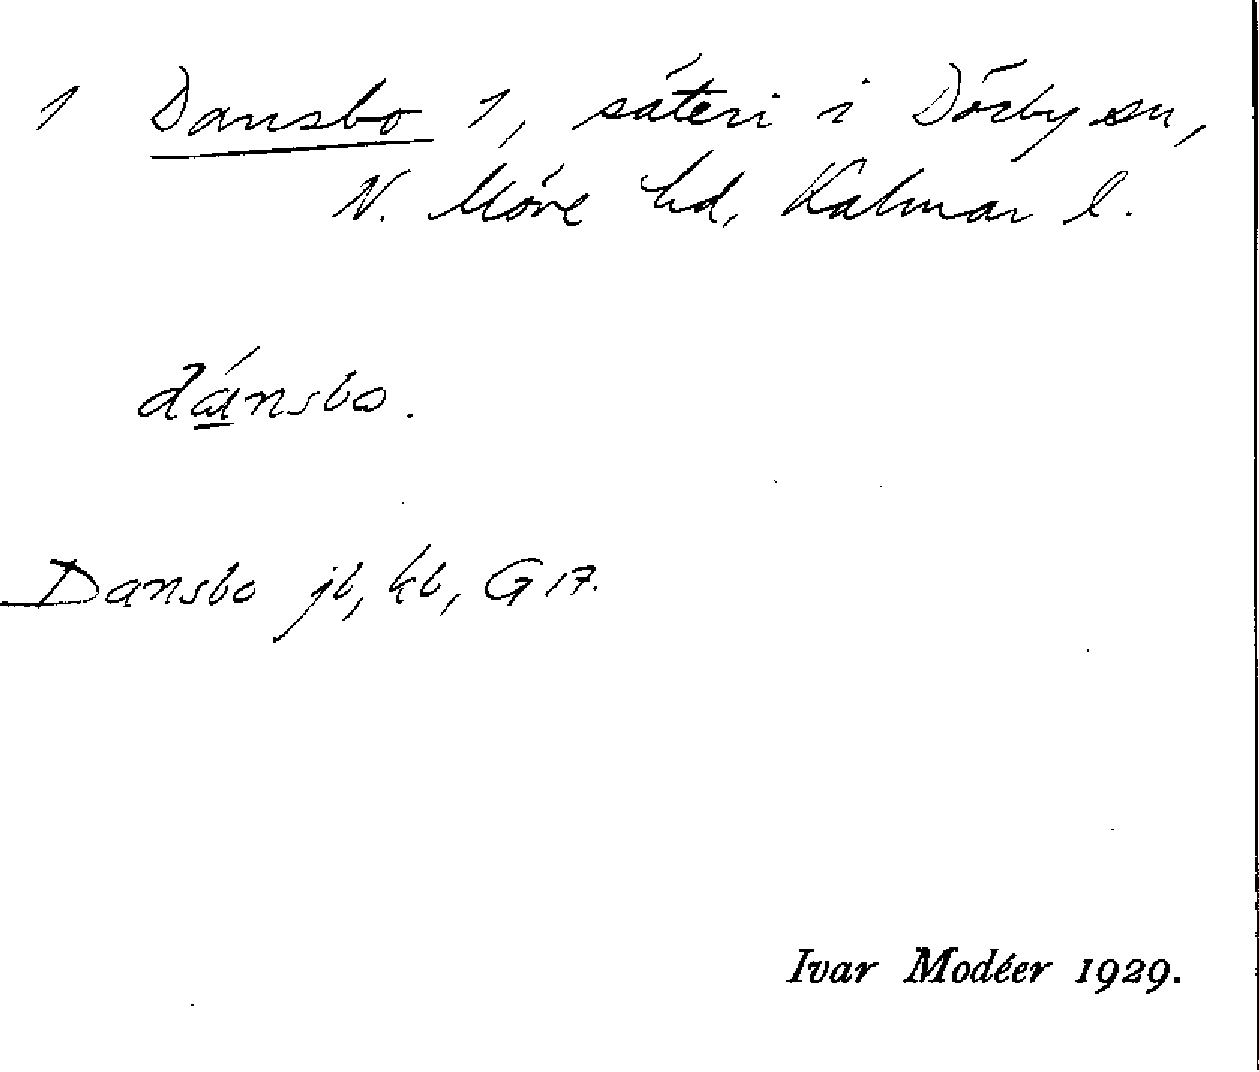 1 Dansbo 1, säteri i Dörby sn,
N. Möre hd, Kalmar l.
dánsbo.
Dansbo jb, kb, G 17.
Ivar Modéer 1929.